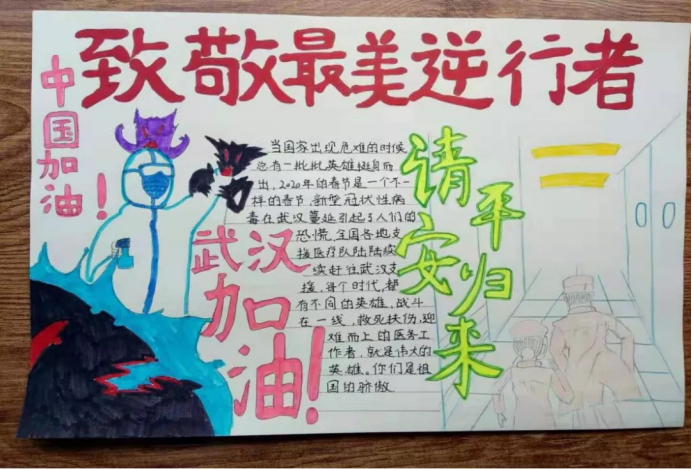 致敬最美逆行者
中国加油！
当国家出现危难的时候
总有一批批英雄挺身而
出，2020年的春节是一个不一
样的春节，新型冠状性病
毒在武汉蔓延引起了人们的
恐慌，全国各地支
援医疗队陆陆续
续赶往武汉支
援，每个时代，都
有不同的英雄，战斗
在一线，救死扶伤，迎
难而上的医务工
作者，就是伟大的
英雄。你们是祖
国的骄傲
武汉
加油！
请平安归来